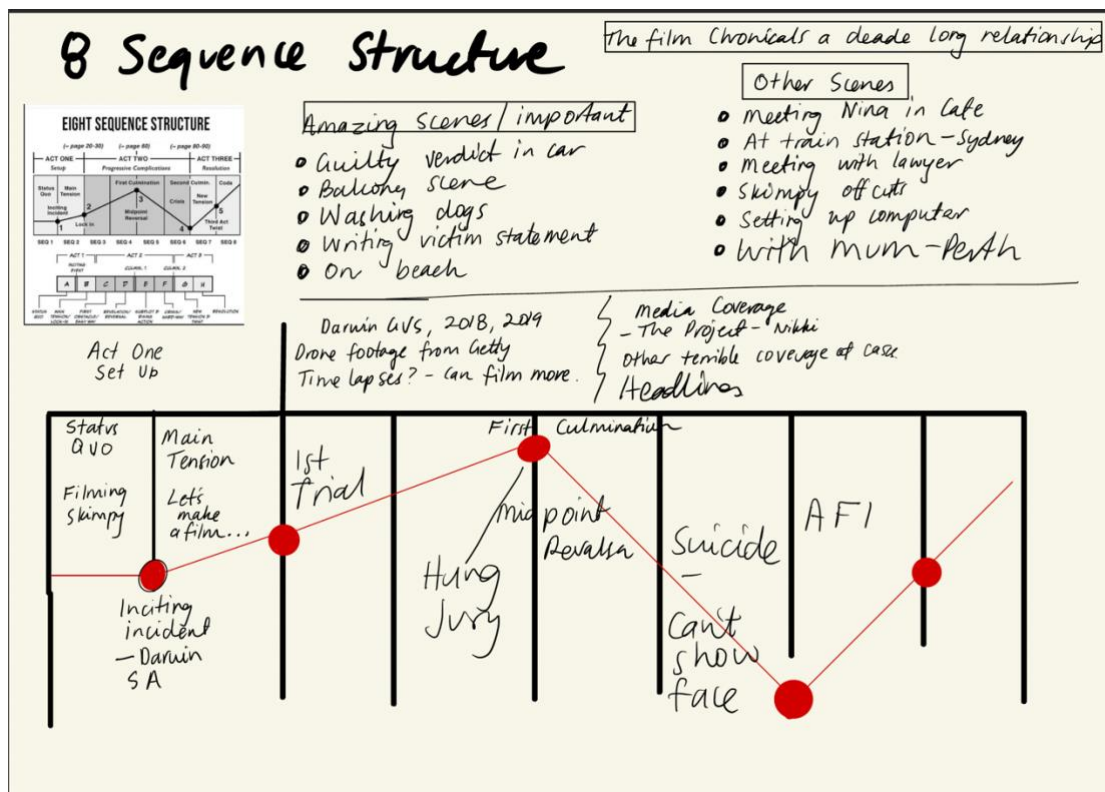 8 Sequence Structure
The film Chronicals a deade long relationship
EIGHT SEQUENCE STRUCTURE
(~ page 20-30) (~ page 60) (~ page 80-90)
ACT ONE ACT TWO ACT THREE
Setup Progressive Complications Resolution
Status Quo
Main Tension
First Culmination
Second Culmin.
Coda
Inciting Incident
1
2
Lock in
3
Midpoint Reversal
Crisis
4
New Tension
5
Third Act Twist
SEQ 1 SEQ 2 SEQ 3 SEQ 4 SEQ 5 SEQ 6 SEQ 7 SEQ 8
ACT 1 ACT 2 ACT 3
A B C D E F G H
Amazing scenes/important
• Guilty verdict in car
• Balcony scene
• Washing dogs
• Writing victim statement
• On beach
Other Scenes
• Meeting Nina in Cafe
• At train station - Sydney
• Meeting with lawyer
• Skimpy off cuts
• Setting up computer
• With mum - Perth
Darwin GVs, 2018, 2019
Drone footage from Getty
Time lapses? - Can film more.
Media Coverage
- The Project - Nikki
other terrible coverage of case
Headlines
Act One
Set Up
Status
Quo
Filming
Skimpy
Main
Tension
Let's
make
a film...
Inciting
incident
- Darwin
SA
1st
Trial
First Culmination
Hung
Jury
Midpoint
Suicide
-
Can't
show
face
AFI